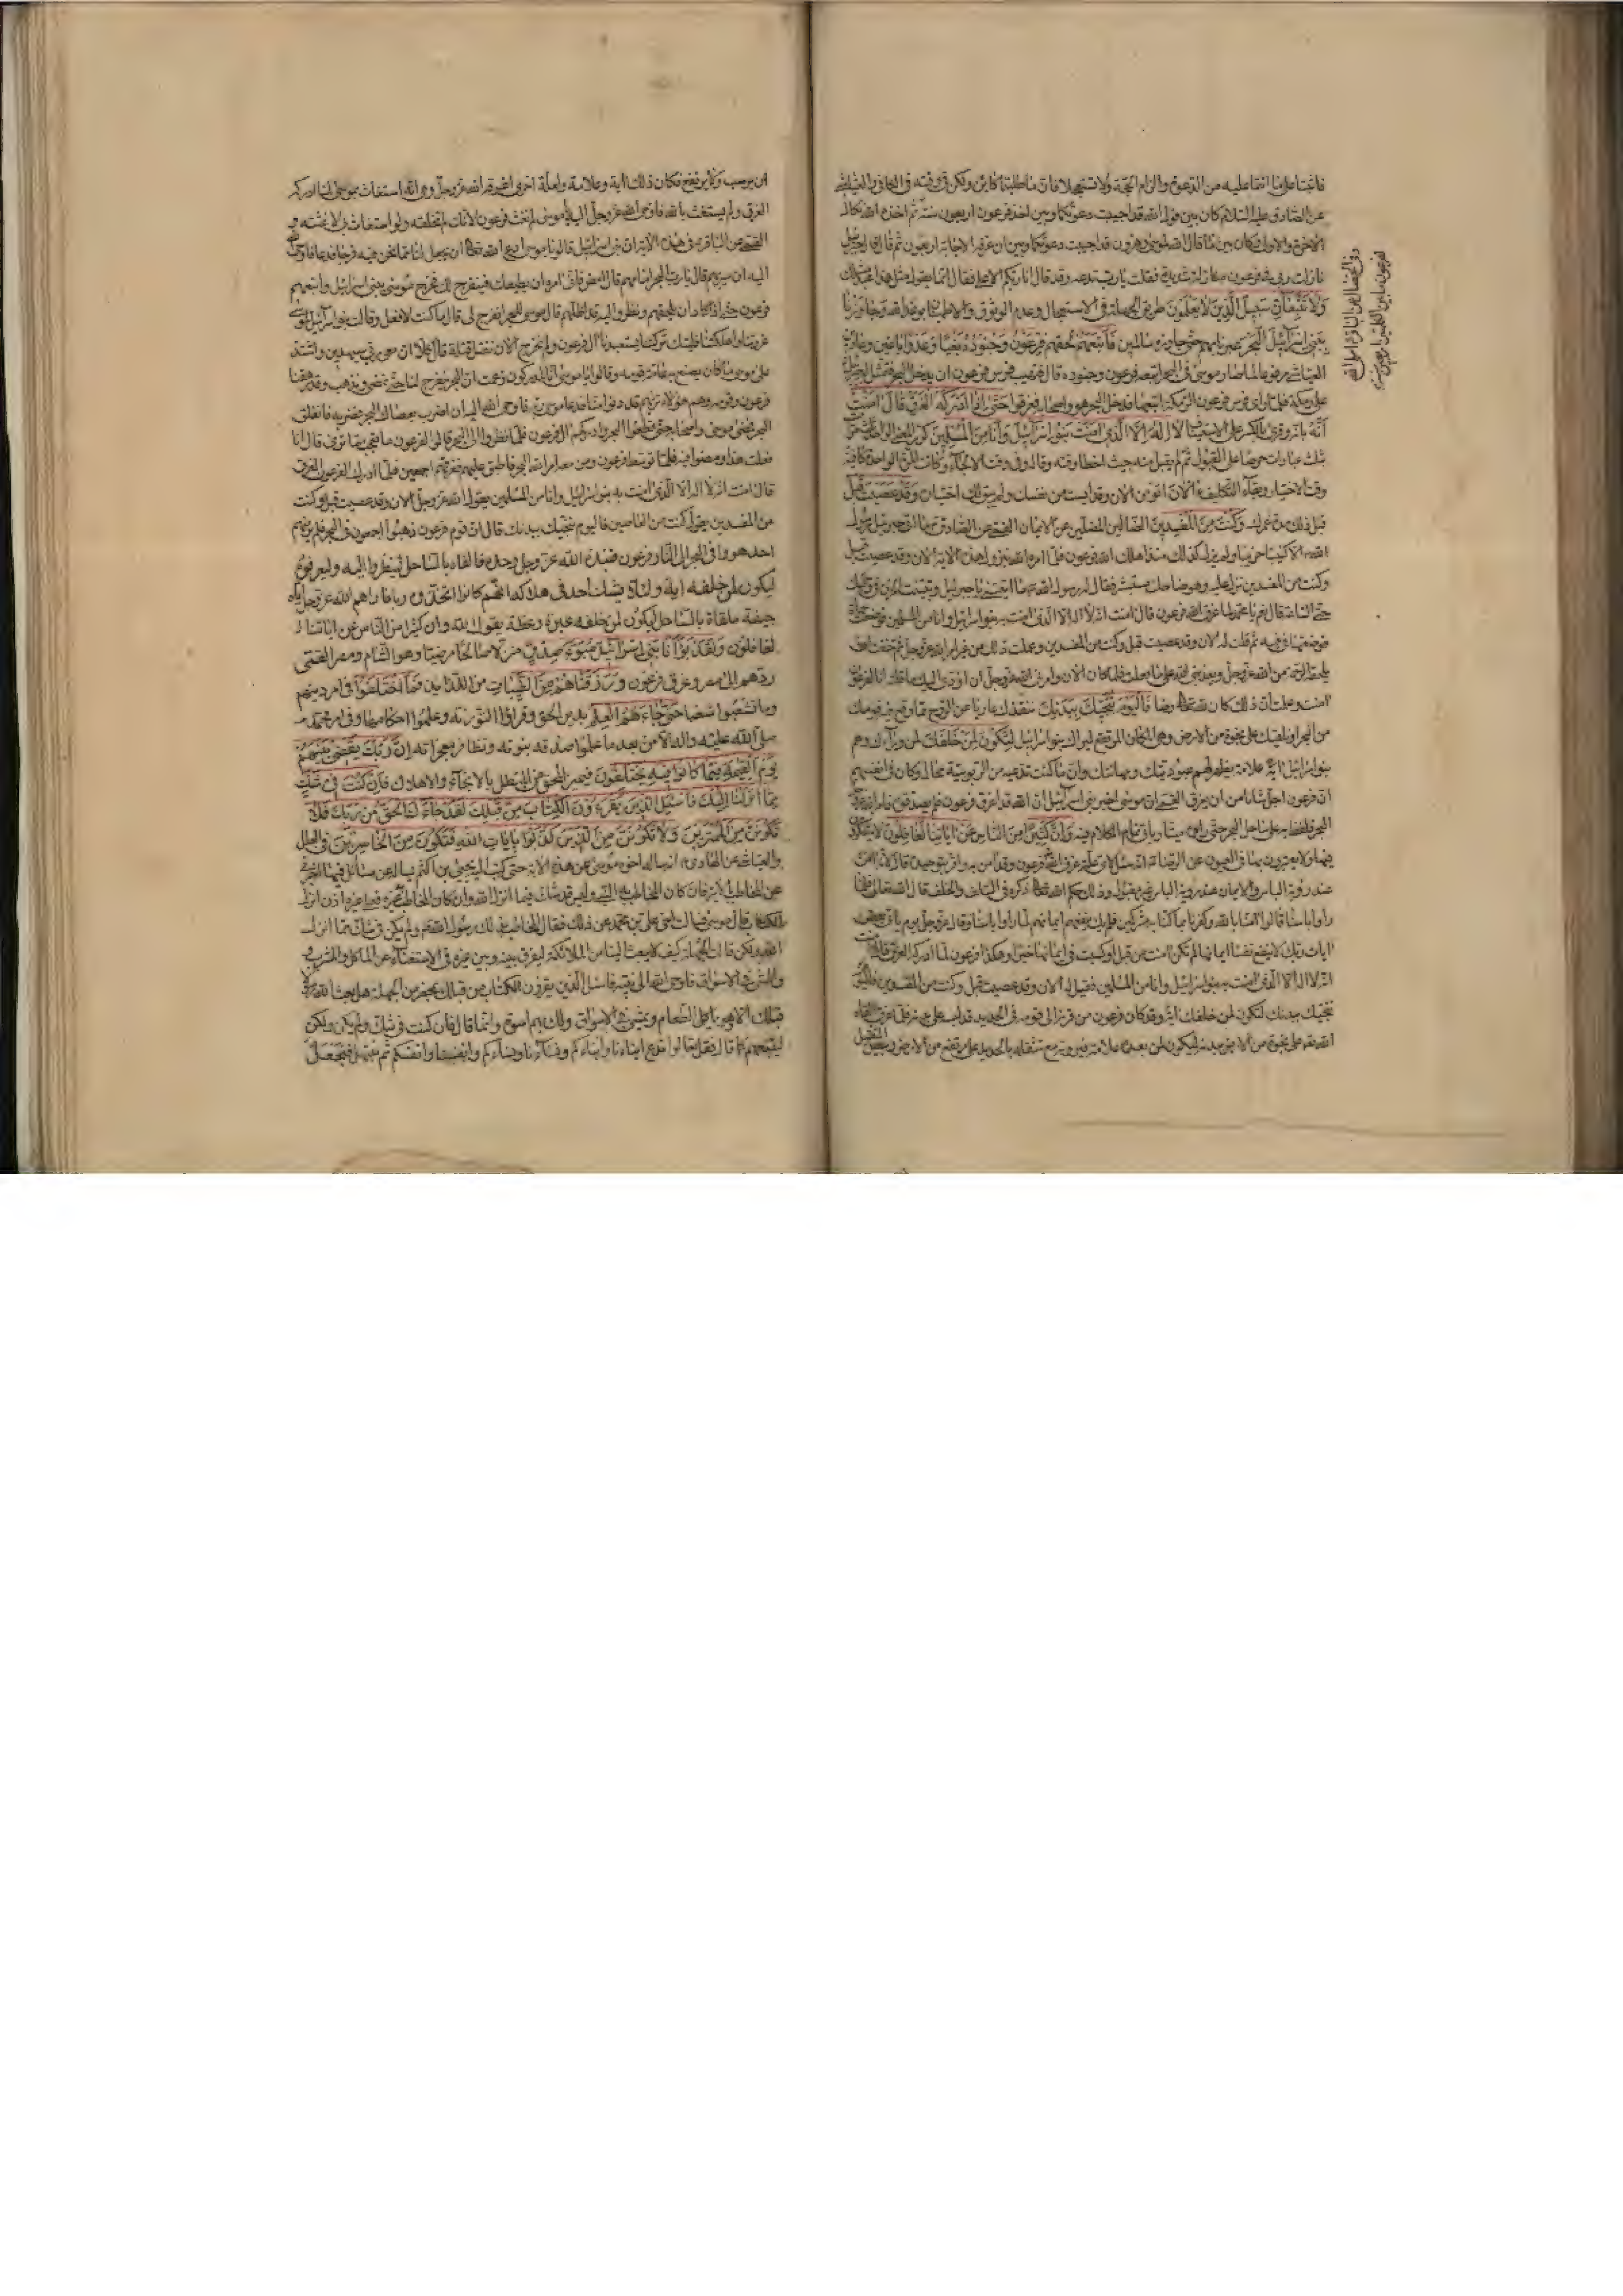 فاثبتا على ما انتما عليه من الدعوة والزام الحجة ولا تستعجلا فان ما طلبتما كائن ولكن في وقته في الكافي والعياشي
عن الصادق عليه السلام كان بين قول الله قد اجيبت دعوتكما وبين اخذ فرعون اربعون سنة ثم اخذه الله نكال
الآخرة والاولى وكان بين ما قال الله لموسى وهرون قد اجيبت دعوتكما وبين ان عرفه الاجابة اربعون ثم قال قال جبرئيل
نازلت ربي في فرعون منازلة شديدة فقلت يا رب تدعه وقد قال انا ربكم الاعلى فقال انما يقول مثل هذا عبد مثلك
وَلَا تَتَّبِعَانِّ سَبِيلَ الَّذِينَ لَا يَعْلَمُونَ طريق الجهلة في الاستعجال وعدم الوثوق والاطمئنان بوعد الله وَجَاوَزْنَا
بِبَنِي إِسْرَائِيلَ الْبَحْرَ عبرنا بهم حتى جاوزوه سالمين فَأَتْبَعَهُمْ لحقهم فِرْعَوْنُ وَجُنُودُهُ بَغْيًا وَعَدْوًا باغين وعادين
العياشي مرفوعا لما صار موسى في البحر اتبعه فرعون وجنوده قال فتهيب فرس فرعون ان يدخل البحر فتمثل له جبرئيل
على رمكة فلما راى فرس فرعون الرمكة اتبعها فدخل البحر هو واصحابه فغرقوا حَتَّى إِذَا أَدْرَكَهُ الْغَرَقُ قَالَ آمَنْتُ
أَنَّهُ بانه وقرئ بالكسر على الاستيناف لَا إِلَهَ إِلَّا الَّذِي آمَنَتْ بِهِ بَنُو إِسْرَائِيلَ وَأَنَا مِنَ الْمُسْلِمِينَ كرر المعنى الواحد ثلث مرات
بثلث عبارات حرصا على القبول ثم لم يقبل منه حيث اخطا وقته وقاله في وقت الالجاء وكانت المرة الواحدة كافية
وقت الاختيار وبقاء التكليف آلْآنَ اتؤمن الآن وقد ايست من نفسك ولم يبق لك اختيار وَقَدْ عَصَيْتَ قَبْلُ
قبل ذلك مدة عمرك وَكُنْتَ مِنَ الْمُفْسِدِينَ الضالين المضلين عن الايمان القمي عن الصادق ع ما اتى جبرئيل رسول
الله ص الا كئيبا حزينا ولم يزل كذلك منذ اهلك الله فرعون فلما امره الله بنزول هذه الآية آلآن وقد عصيت قبل
وكنت من المفسدين نزل عليه وهو ضاحك مستبشر فقال له رسول الله ص ما اتيتني يا جبرئيل الا وتبينت الحزن في وجهك
حتى الساعة قال نعم يا محمد لما غرق الله فرعون قال آمنت انه لا اله الا الذي آمنت به بنو اسرائيل وانا من المسلمين فاخذت حمأة
فوضعتها في فيه ثم قلت له آلآن وقد عصيت قبل وكنت من المفسدين وعملت ذلك من غير امر الله عز وجل ثم خفت ان
يلحقه الرحمة من الله عز وجل ويعذبني الله على ما فعلت فلما كان الآن وامرني الله عز وجل ان اؤدي اليك ما قلته انا لفرعون
امنت وعلمت ان ذلك كان لله تعالى رضا فَالْيَوْمَ نُنَجِّيكَ بِبَدَنِكَ ننقذك عاريا عن الروح مما وقع فيه قومك
من البحر او نلقيك على نجوة من الارض وهي المكان المرتفع ليراك بنو اسرائيل لِتَكُونَ لِمَنْ خَلْفَكَ لمن وراءك وهم
بنو اسرائيل آيَةً علامة يظهر لهم عبوديتك ومهانتك وان ما كنت تدعيه من الربوبية محال وكان في انفسهم
ان فرعون اجل شانا من ان يغرق القمي ان موسى اخبر بني اسرائيل ان الله قد اغرق فرعون فلم يصدقوه فامر الله عز وجل
البحر فلفظ به على ساحل البحر حتى راوه ميتا وياتي تمام الكلام فيه وَإِنَّ كَثِيرًا مِنَ النَّاسِ عَنْ آيَاتِنَا لَغَافِلُونَ لا يتفكرون
فيها ولا يعتبرون بها في العيون عن الرضا ع انه سئل لاي علة غرق الله فرعون وقد آمن به واقر بتوحيده قال لانه آمن
عند رؤية الباس والايمان عند رؤية الباس غير مقبول وذلك حكم الله تعالى ذكره في السلف والخلف قال الله تعالى فلما
راوا باسنا قالوا آمنا بالله وحده وكفرنا بما كنا به مشركين فلم يك ينفعهم ايمانهم لما راوا باسنا وقال عز وجل يوم ياتي بعض
آيات ربك لا ينفع نفسا ايمانها لم تكن آمنت من قبل او كسبت في ايمانها خيرا وهكذا فرعون لما ادركه الغرق قال آمنت
انه لا اله الا الذي آمنت به بنو اسرائيل وانا من المسلمين فقيل له آلآن وقد عصيت قبل وكنت من المفسدين فاليوم
ننجيك ببدنك لتكون لمن خلفك آية وقد كان فرعون من قرنه الى قدمه في الحديد قد لبسه على بدنه فلما غرق القاه
الله تعالى على نجوة من الارض ببدنه ليكون لمن بعده علامة فيرونه مع تثقله بالحديد على مرتفع من الارض وسبيل الثقيل
وفي الخصال عن الباقر ع املى الله
لفرعون ما بين الكلمتين اربعين سنة
ان يرسب ولا يرتفع فكان ذلك آية وعلامة ولعلة اخرى اغرقه الله عز وجل وهي انه استغاث بموسى لما ادركه
الغرق ولم يستغث بالله فاوحى الله عز وجل اليه يا موسى لم تغث فرعون لانك لم تخلقه ولو استغاث بي لاغثته و
القمي عن الباقر ع في هذه الآية ان بني اسرائيل قالوا يا موسى ادع الله تعالى ان يجعل لنا مما نحن فيه فرجا فدعا فاوحى الله
اليه ان سر بهم قال يا رب البحر امامهم قال امض فاني آمره ان يطيعك وينفرج لك فخرج موسى ببني اسرائيل واتبعهم
فرعون حتى اذا كاد ان يلحقهم ونظروا اليه قد اظلهم قال موسى للبحر انفرج لي قال ما كنت لافعل وقالت بنو اسرائيل لموسى
غررتنا واهلكتنا فليتك تركتنا يستعبدنا آل فرعون ولم نخرج الآن نقتل قتلة قال كلا ان معي ربي سيهدين واشتد
على موسى ما كان يصنع به عامة قومه وقالوا يا موسى انا لمدركون زعمت ان البحر ينفرج لنا حتى نمضي ونذهب وقد رهقنا
فرعون وقومه وهم هؤلاء نراهم قد دنوا منا فدعا موسى ربه فاوحى الله اليه ان اضرب بعصاك البحر فضربه فانفلق
البحر فمضى موسى واصحابه حتى قطعوا البحر وادركهم آل فرعون فلما نظروا الى البحر قالوا لفرعون ما تعجب مما ترى قال انا
فعلت هذا ومضوا فيه فلما توسط فرعون ومن معه امر الله البحر فاطبق عليهم فغرقهم اجمعين فلما ادرك فرعون الغرق
قال آمنت انه لا اله الا الذي آمنت به بنو اسرائيل وانا من المسلمين يقول الله عز وجل آلآن وقد عصيت قبل وكنت
من المفسدين يقول كنت من العاصين فاليوم ننجيك ببدنك قال ان قوم فرعون ذهبوا اجمعون في البحر فلم ير منهم
احد هووا في البحر الى النار وفرعون فنبذه الله عز وجل وحده فالقاه بالساحل لينظروا اليه وليعرفوه
ليكون لمن خلفه آية ولئلا يشك احد في هلاكه انهم كانوا اتخذوه ربا فاراهم الله عز وجل اياه
جيفة ملقاة بالساحل ليكون لمن خلفه عبرة وعظة يقول الله وان كثيرا من الناس عن اياتنا
لغافلون وَلَقَدْ بَوَّأْنَا بَنِي إِسْرَائِيلَ مُبَوَّأَ صِدْقٍ منزلا صالحا مرضيا وهو الشام ومصر القمي
ردهم الى مصر وغرق فرعون وَرَزَقْنَاهُمْ مِنَ الطَّيِّبَاتِ من اللذائذ فَمَا اخْتَلَفُوا في امر دينهم
وما تشعبوا شعبا حَتَّى جَاءَهُمُ الْعِلْمُ بدين الحق وقراوا التورية وعلموا احكامها وفي امر محمد
صلى الله عليه وآله الا من بعد ما علموا صدقه بنبوته وتظافر معجزاته إِنَّ رَبَّكَ يَقْضِي بَيْنَهُمْ
يَوْمَ الْقِيَمَةِ فِيمَا كَانُوا فِيهِ يَخْتَلِفُونَ فيميز المحق من المبطل بالانجاء والاهلاك فَإِنْ كُنْتَ فِي شَكٍّ
مِمَّا أَنْزَلْنَا إِلَيْكَ فَاسْئَلِ الَّذِينَ يَقْرَؤُونَ الْكِتَابَ مِنْ قَبْلِكَ لَقَدْ جَاءَكَ الْحَقُّ مِنْ رَبِّكَ فَلَا
تَكُونَنَّ مِنَ الْمُمْتَرِينَ وَلَا تَكُونَنَّ مِنَ الَّذِينَ كَذَّبُوا بِآيَاتِ اللَّهِ فَتَكُونَ مِنَ الْخَاسِرِينَ في العلل
والعياشي عن الهادي ع انه ساله اخوه موسى عن هذه الآية حين كتب اليه يحيى بن اكثم يساله عن مسائل فيها اخبرني
عن المخاطب بالآية فان كان المخاطب به النبي ص اليس قد شك فيما انزل الله وان كان المخاطب به غيره فعلى غيره اذن انزل
الكتاب قال موسى فسالت اخي علي بن محمد عن ذلك فقال المخاطب بذلك رسول الله ص ولم يكن في شك مما انزل
الله ولكن قالت الجهلة كيف لا يبعث الينا من الملائكة ليفرق بينه وبين غيره في الاستغناء عن الماكل والمشرب
والمشي في الاسواق فاوحى الله الى نبيه فاسئل الذين يقرؤن الكتاب من قبلك بمحضر من الجهلة هل بعث الله رسولا
قبلك الا وهو ياكل الطعام ويمشي في الاسواق ولك بهم اسوة وانما قال فان كنت في شك ولم يكن ولكن
ليتبعهم كما قال فقل تعالوا ندع ابناءنا وابناءكم ونساءنا ونساءكم وانفسنا وانفسكم ثم نبتهل فنجعل